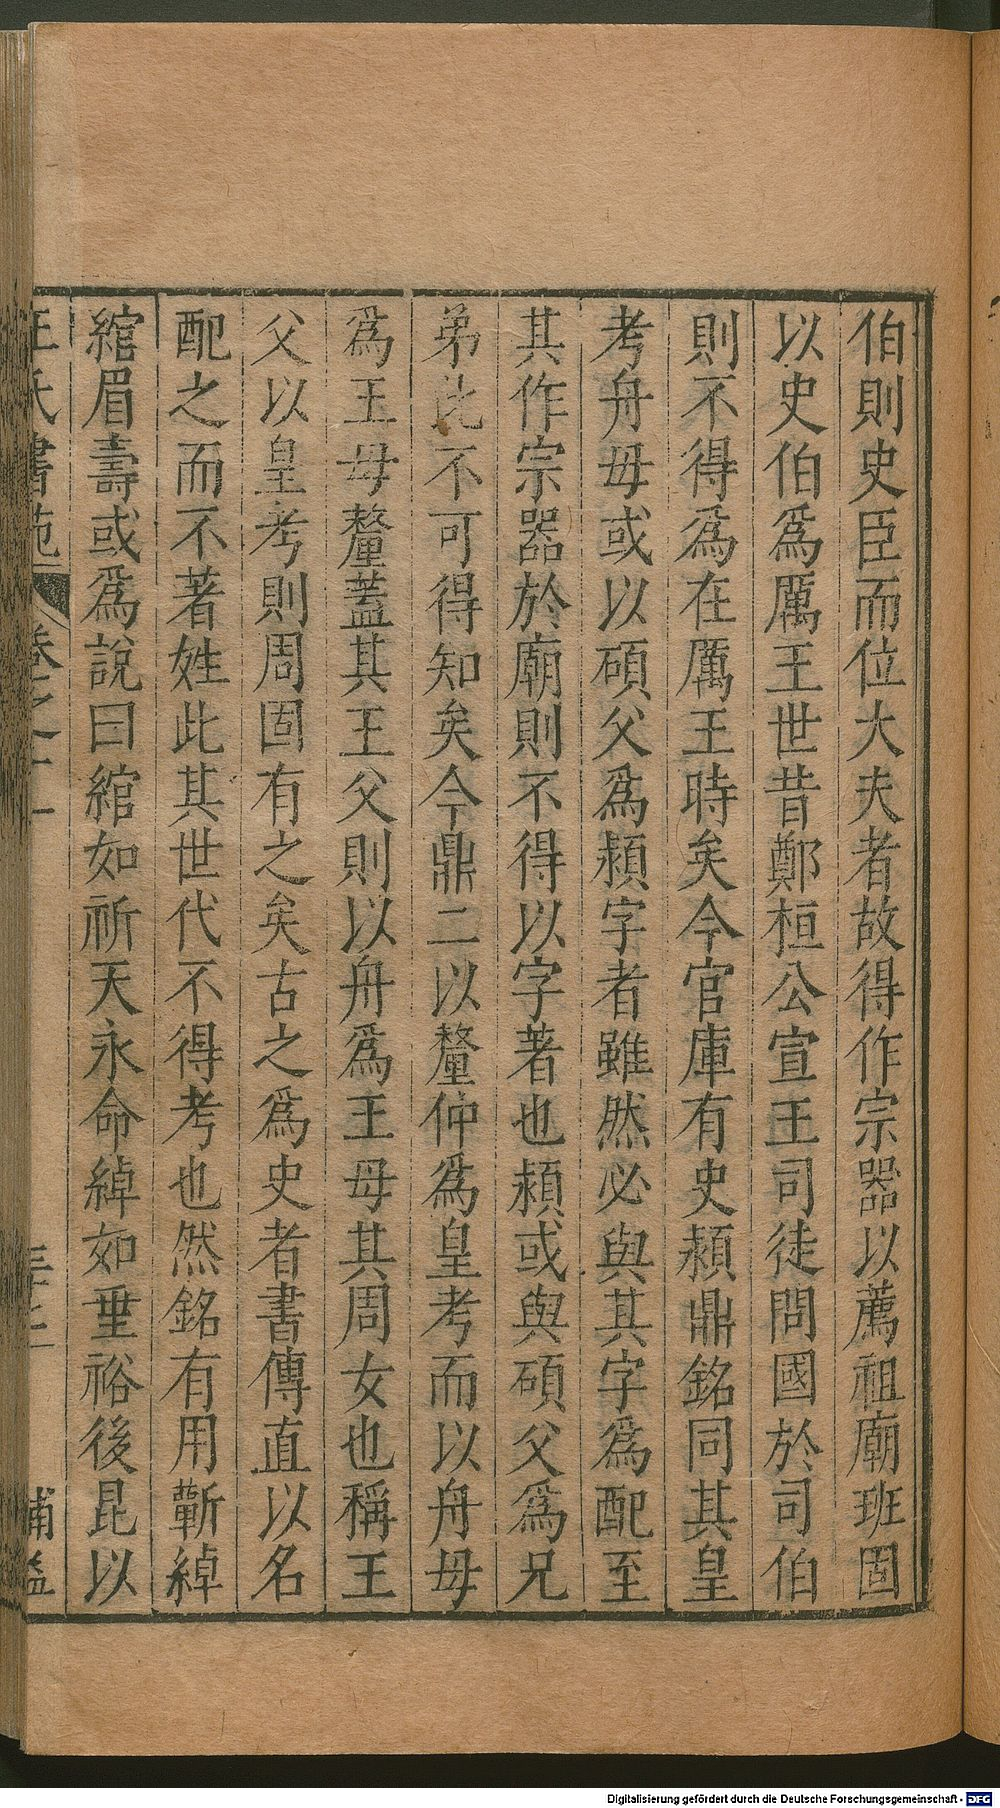 伯則史臣而位大夫者故得作宗器以薦祖廟班固
以史伯爲厲王世昔鄭桓公宣王司徒問國於司伯
則不得爲在厲王時矣今官庫有史頮鼎銘同其皇
考舟毋或以碩父爲頮字者雖然必與其字爲配至
其作宗器於廟則不得以字著也頮或與碩父爲兄
弟此不可得知矣今鼎二以釐仲爲皇考而以舟毋
爲王毋釐蓋其王父則以舟爲王毋其周女也稱王
父以皇考則周固有之矣古之爲史者書傳直以名
配之而不著姓此其世代不得考也然銘有用蘄綽
綰眉壽或爲說曰綰如祈天永命綽如垂裕後昆以
王氏書苑 卷之十一 補益
Digitalisierung gefördert durch die Deutsche Forschungsgemeinschaft - DFG